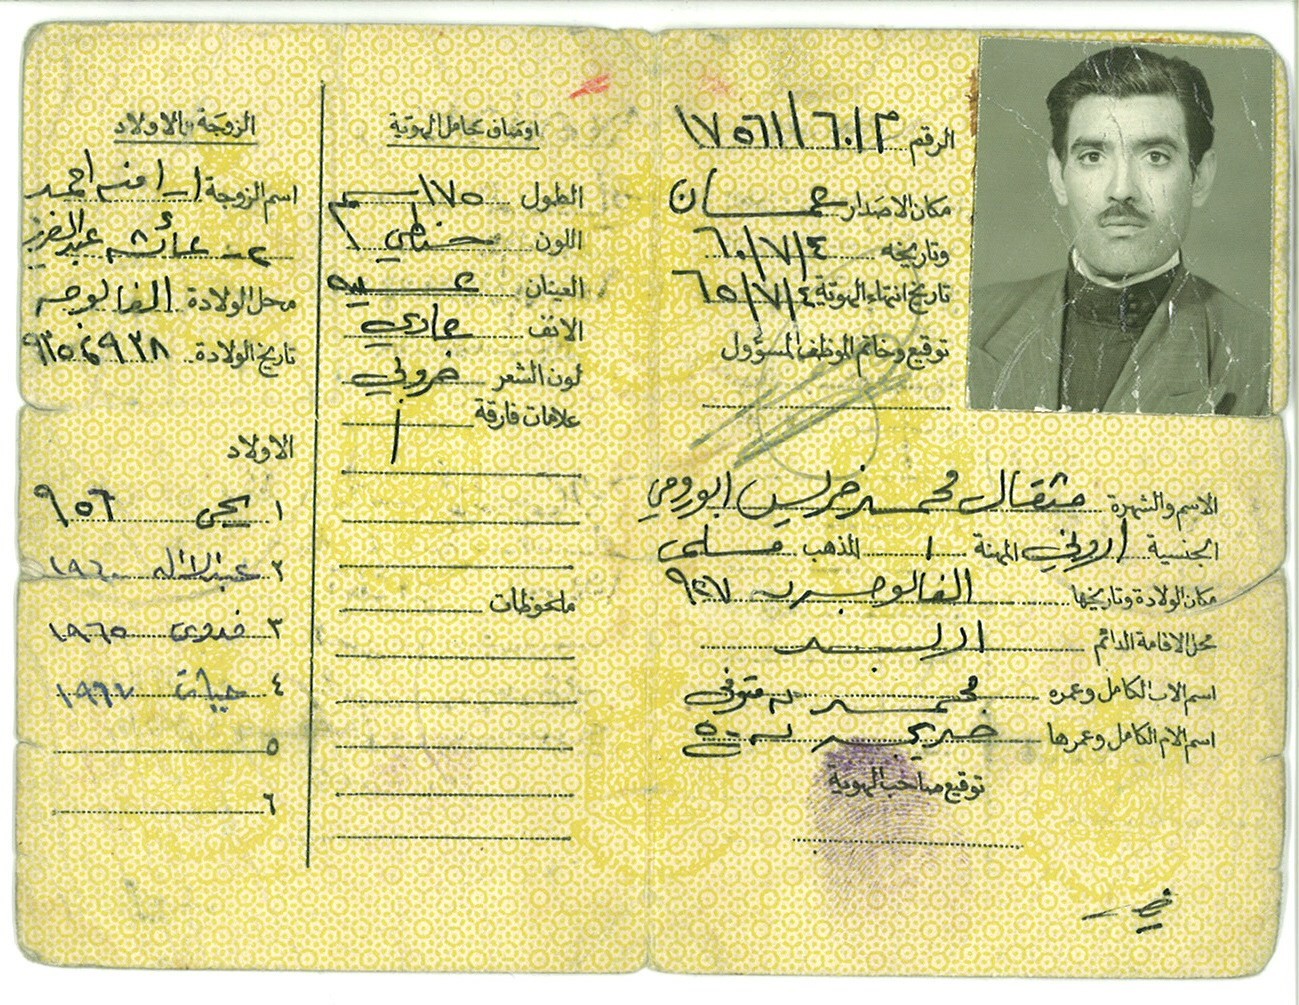 الرقم ١٧٥٦١/٦٠/٣
مكان الاصدار عمان
وتاريخه ٦٠/٧/٤
تاريخ انتهاء الهوية ٦٥/٧/٤
توقيع وخاتم الموظف المسؤول
الاسم والشهرة مثقال محمد خريس ابورومي
الجنسية اردني المهنة / المذهب مسلم
مكان الولادة وتاريخها الفالوجه سنه ٩٢٧
محل الاقامة الدائم اربد
اسم الاب الكامل وعمره محمد متوفي
اسم الام الكامل وعمرها ٥٠
توقيع صاحب الهوية
اوصاف حامل الهوية
الطول ١٧٥ سم
اللون حنطي
العينان عسليه
الانف عادي
لون الشعر خروبي
علامات فارقة /
ملحوظات
الزوجة والاولاد
اسم الزوجة ١- امنه احمد
٢- عائشه عبدالعزيز
محل الولادة الفالوجه
تاريخ الولادة ٩٢٨ و ٩٣٥
الاولاد
١ يحيى ٩٥٦
٢ عبدالاله ١٩٦٠
٣ فدوى ١٩٦٥
٤ حياة ١٩٦٧
٥
٦